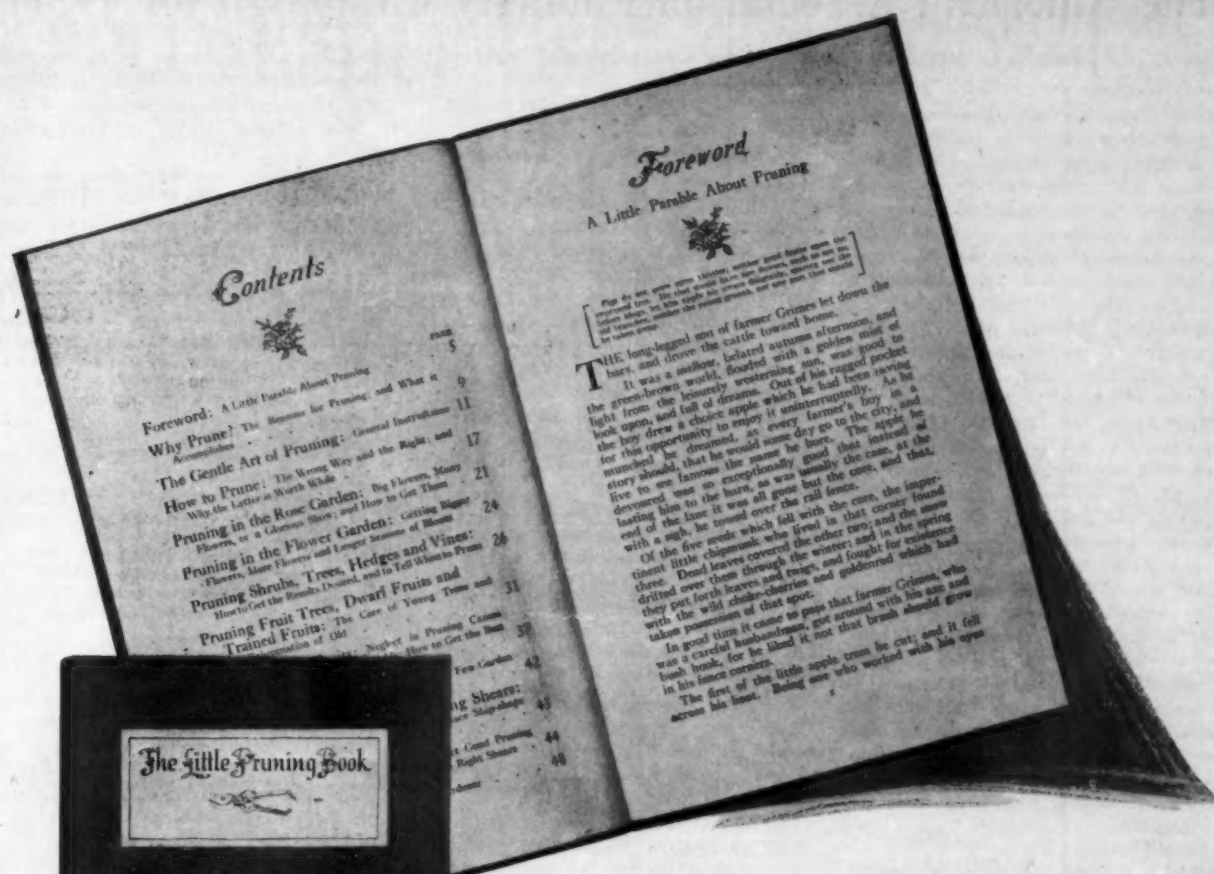 Contents
PAGE
Foreword: A Little Parable About Pruning 5
Why Prune? The Reasons for Pruning; and What it
Accomplishes 9
The Gentle Art of Pruning: General Instructions 11
How to Prune: The Wrong Way and the Right; and
Why the Latter is Worth While 17
Pruning in the Rose Garden: Big Flowers, Many
Flowers, or a Glorious Show; and How to Get Them 21
Pruning in the Flower Garden: Getting Bigger
Flowers, More Flowers and Longer Season of Bloom 24
Pruning Shrubs, Trees, Hedges and Vines:
How to Get the Results Desired, and to Tell When to Prune 26
Pruning Fruit Trees, Dwarf Fruits and
Trained Fruits: The Care of Young Trees and
of Old 31
Neglect in Pruning
How to Get the Best 37
Few Garden
42
Shears:
Ship-shape
43
Good Pruning
Right Shears 44
48
Foreword
A Little Parable About Pruning
Figs do not grow upon thistles, neither good fruits upon the
unpruned tree. He that would have fine flowers, such as are
before kings, let him apply his shears diligently, sparing not the
old branches, neither the young growth, nor any part that should
be taken away.
THE long-legged son of farmer Grimes let down the
bars, and drove the cattle toward home.
It was a mellow, belated autumn afternoon, and
the green-brown world, flooded with a golden mist of
light from the leisurely westering sun, was good to
look upon, and full of dreams. Out of his ragged pocket
the boy drew a choice apple which he had been saving
for this opportunity to enjoy it uninterruptedly. As he
munched he dreamed, as every farmer's boy in a
story should, that he would some day go to the city, and
live to see famous the name he bore. The apple he
devoured was so exceptionally good that instead of
lasting him to the barn, as was usually the case, at the
end of the lane it was all gone but the core, and that,
with a sigh, he tossed over the rail fence.
Of the five seeds which fell with the core, the imper-
tinent little chipmunk who lived in that corner found
three. Dead leaves covered the other two; and the snow
drifted over them through the winter; and in the spring
they put forth leaves and twigs, and fought for existence
with the wild choke-cherries and goldenrod which had
taken possession of that spot.
In good time it came to pass that farmer Grimes, who
was a careful husbandman, got around with his axe and
bush hook, for he liked it not that brush should grow
in his fence corners.
The first of the little apple trees he cut; and it fell
across his hand. Being one who worked with his eyes
5
The Little Pruning Book